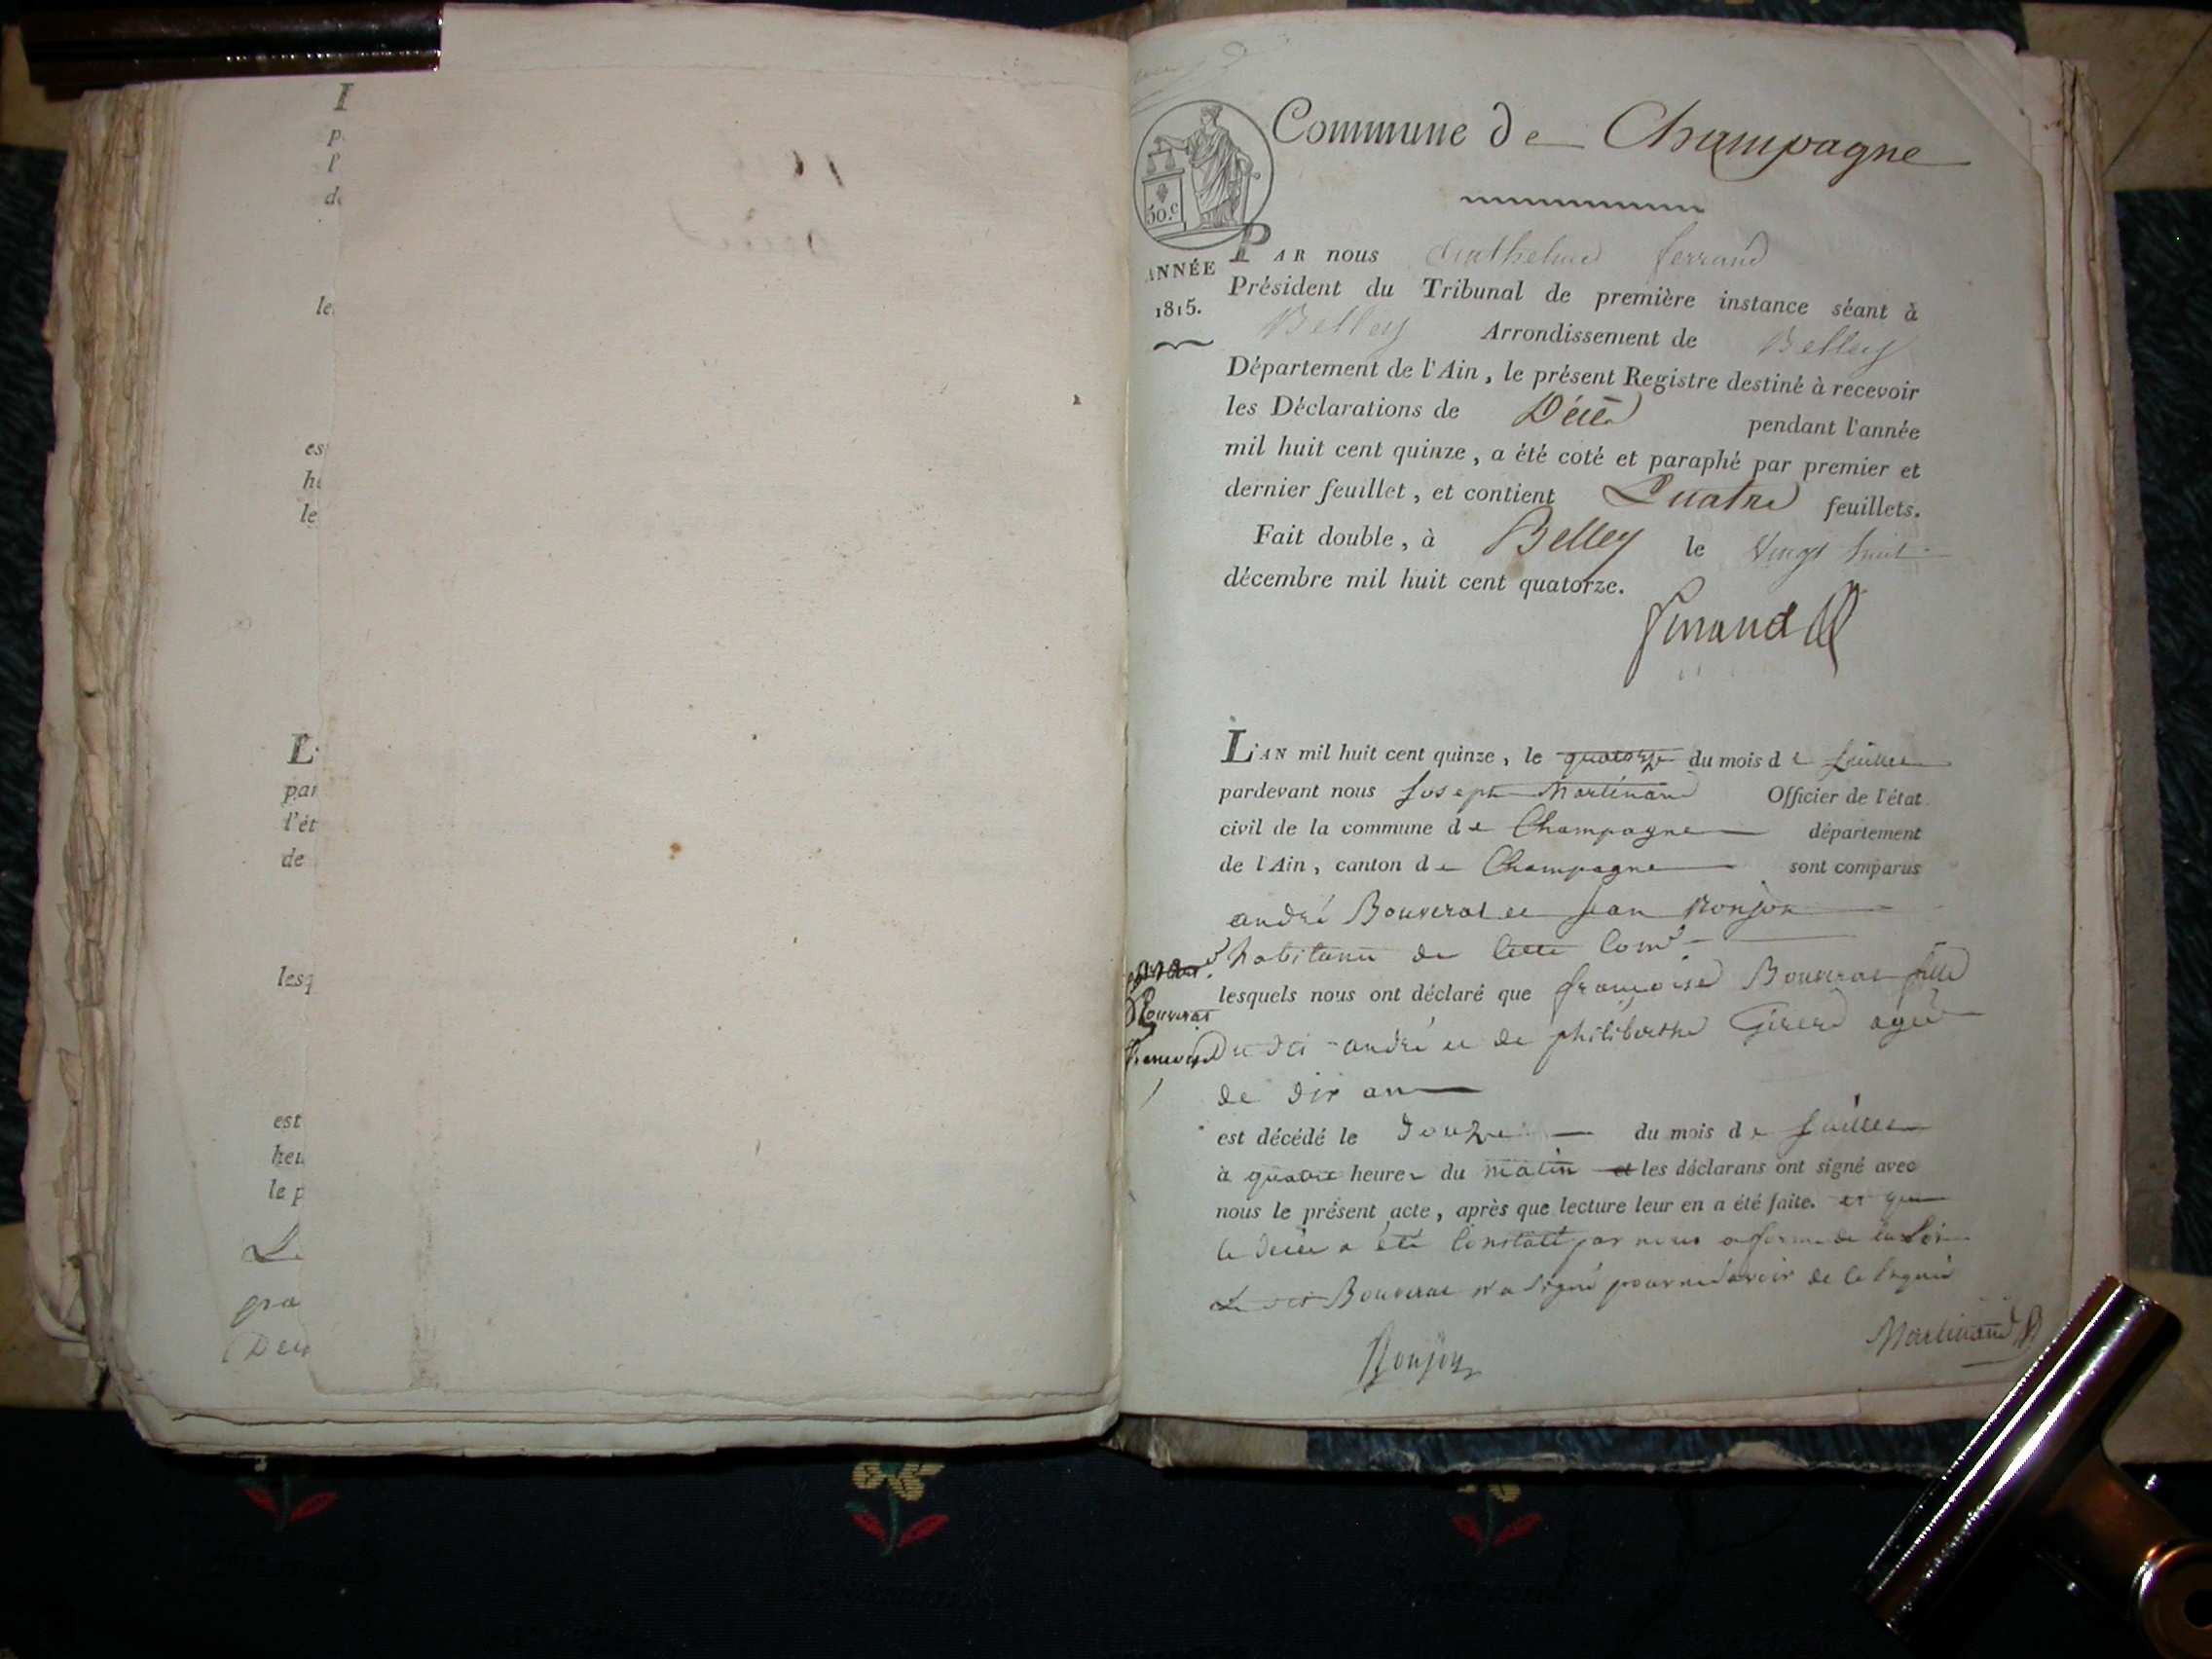 I
p
l'
de
le
es
he
le
L'
par
l'ét
de
lesq
est
heu
le p
gra
Commune de Champagne
50.c
ANNÉE
1815.
PAR nous Anthelme ferrand
Président du Tribunal de première instance séant à
Belley Arrondissement de Belley
Département de l'Ain, le présent Registre destiné à recevoir
les Déclarations de Décès pendant l'année
mil huit cent quinze, a été coté et paraphé par premier et
dernier feuillet, et contient Quatre feuillets.
Fait double, à Belley le Vingt huit
décembre mil huit cent quatorze.
ferrand
L'AN mil huit cent quinze, le quatorze du mois de Juillet
pardevant nous Joseph Martinand Officier de l'état
civil de la commune de Champagne département
de l'Ain, canton de Champagne sont comparus
andré Bouverat et Jean Monjon
habitans de cette Com.e
Bouverat
francoise
lesquels nous ont déclaré que francoise Bouverat fille
du dit andré et de philiberthe Girerd agée
de dix ans
est décédé le douze du mois de Juillet
à quatre heures du matin et les déclarans ont signé avec
nous le présent acte, après que lecture leur en a été faite. et que
le décès a été Constaté par nous a forme de la Loi
Le dit Bouverat n'a signé pour ne savoir de ce Enquis
Monjon
Martinand